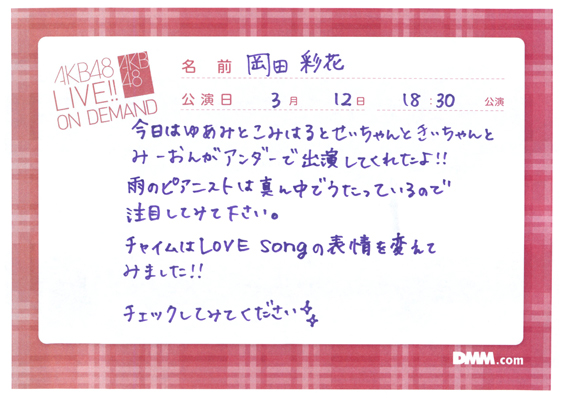 AKB48
LIVE!!
ON DEMAND
AKB
48
名前 岡田彩花
公演日 3月 12日 18:30 公演
今日はゆあみとこみはるとせいちゃんときぃちゃんと
みーおんがアンダーで出演してくれたよ!!
雨のピアニストは真ん中でうたっているので
注目してみて下さい。
チャイムはLOVE Songの表情を変えて
みました!!
チェックしてみてください
DMM.com